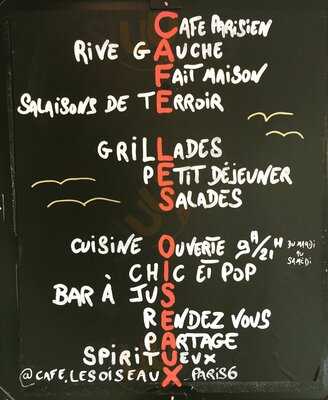 CAFE PARISIEN
RIVE GAUCHE
FAIT MAISON
SALAISONS DE TERROIR
GRILLADES
PETIT DÉJEUNER
SALADES
CUISINE OUVERTE 9A/21H
DU MARDI
AU
SAMEDI
CHIC ET POP
BAR À JUS
RENDEZ VOUS
PARTAGE
SPIRITUEUX
@CAFE.LESOISEAUX PARIS6